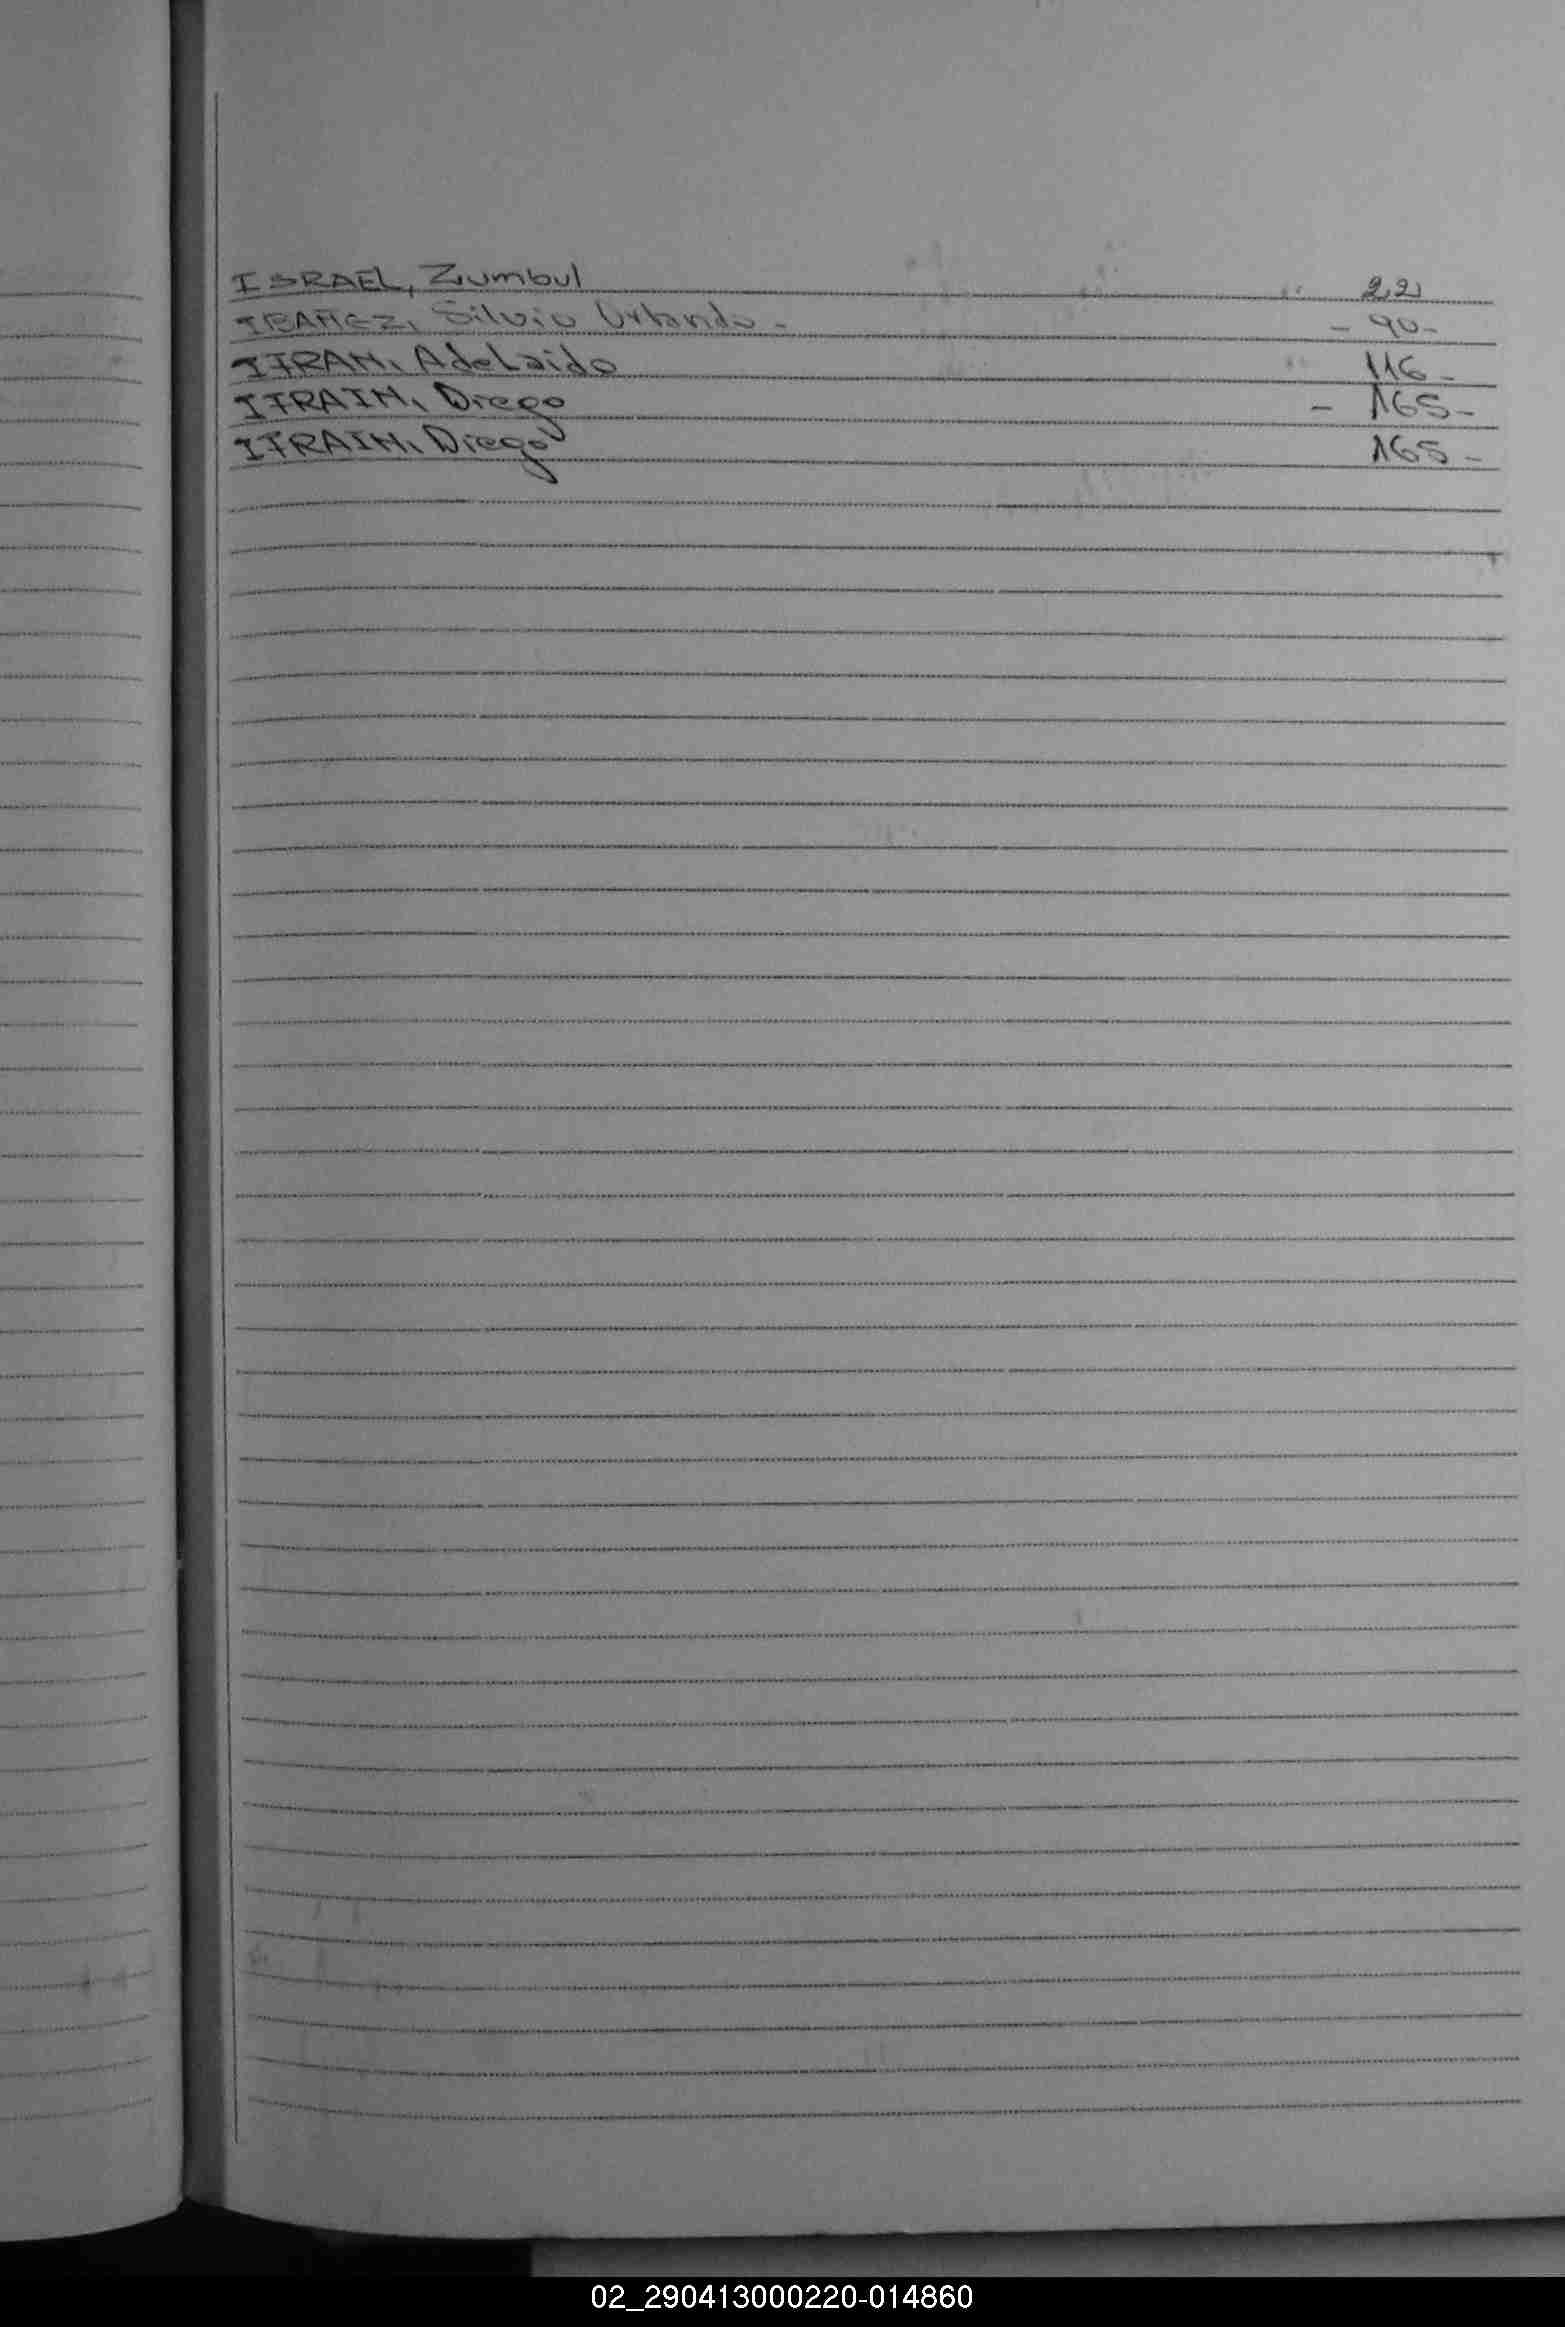 ISRAEL, Zumbul 22
IBAÑEZ, Silvio Orlando - - 90 -
ITRAN, Adelaido 116 -
ITRAIN, Diego - 165 -
ITRAIN, Diego 165 -
02_290413000220-014860